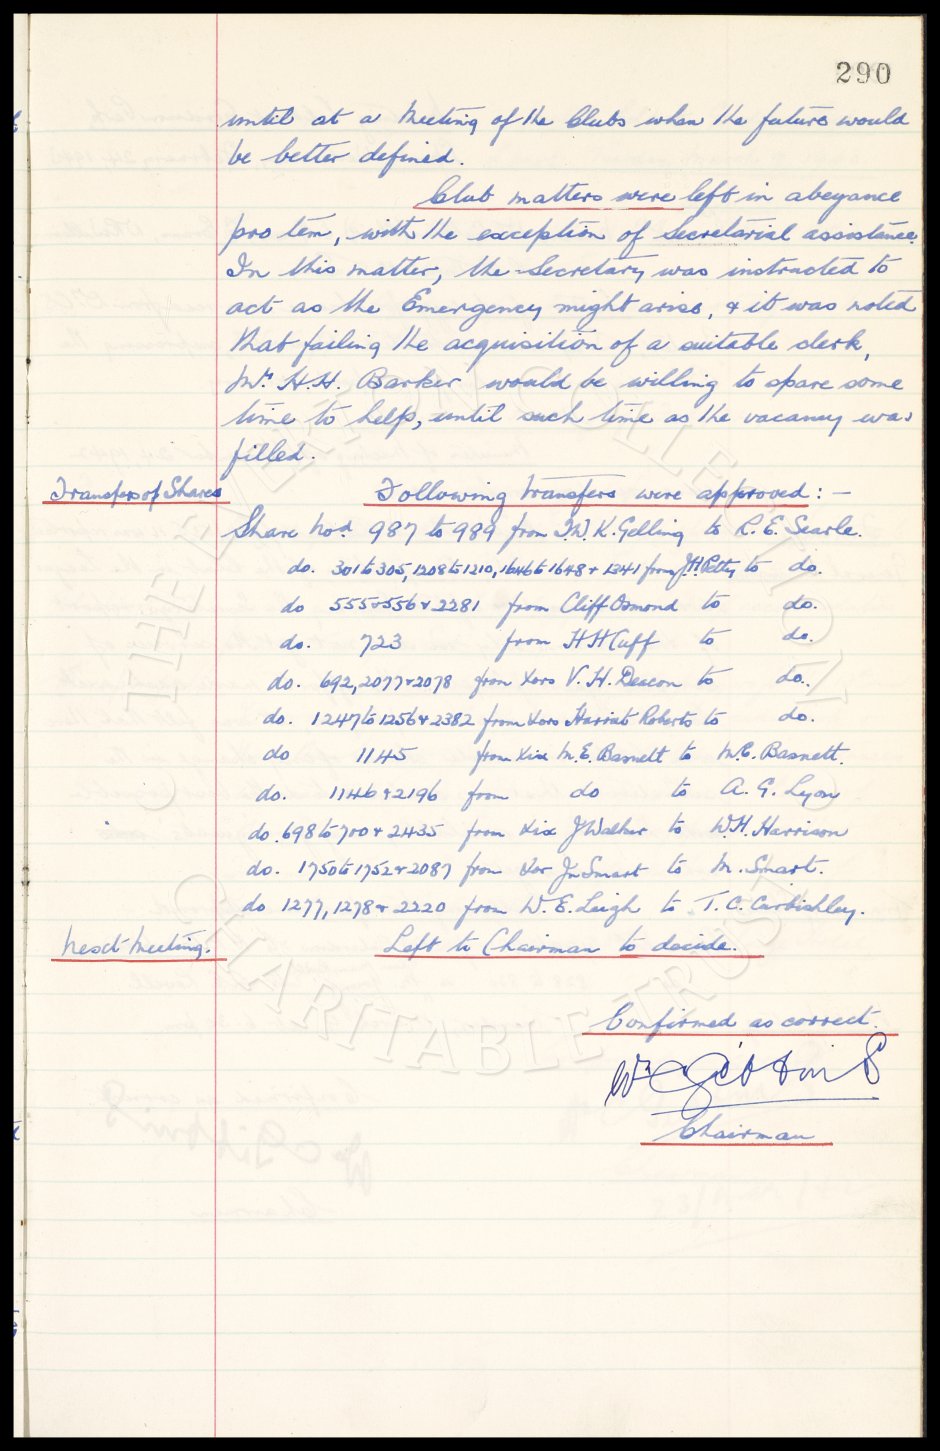 290
until at a Meeting of the Clubs when the future would
be better defined.
Club matters were left in abeyance
pro tem, with the exception of secretarial assistance.
In this matter, the Secretary was instructed to
act as the Emergency might arise, & it was noted
that failing the acquisition of a suitable clerk,
Mr. H.H. Barker would be willing to spare some
time to help, until such time as the vacancy was
filled.
Transfers of Shares
Following transfers were approved: -
Share Nos. 987 to 989 from T.W.K. Gelling to R.E. Searle.
do. 301 to 305, 1208 to 1210, 1646 to 1648 & 1341 from J.H. Petty to do.
do 555 & 556 & 2281 from Cliff Osmond to do.
do. 723 from H H Cuff to do.
do. 692, 2077 & 2078 from Xors V. H. Deacon to do.
do. 1247 to 1256 & 2382 from Xors Harriet Roberts to do.
do 1145 from Xix M.E. Basnett to M.E. Basnett.
do. 1146 & 2196 from do to A. G. Lyon
do. 698 to 700 & 2435 from Xix J Walker to W.H. Harrison
do. 1750 to 1752 & 2087 from Xor Jn Smart to M. Smart.
do 1277, 1278 & 2220 from W. E. Leigh to T. C. Carbishley.
Next Meeting.
Left to Chairman to decide.
Confirmed as correct.
Wm C Gibbins
Chairman
THE EVERTON COLLECTION
CHARITABLE TRUST